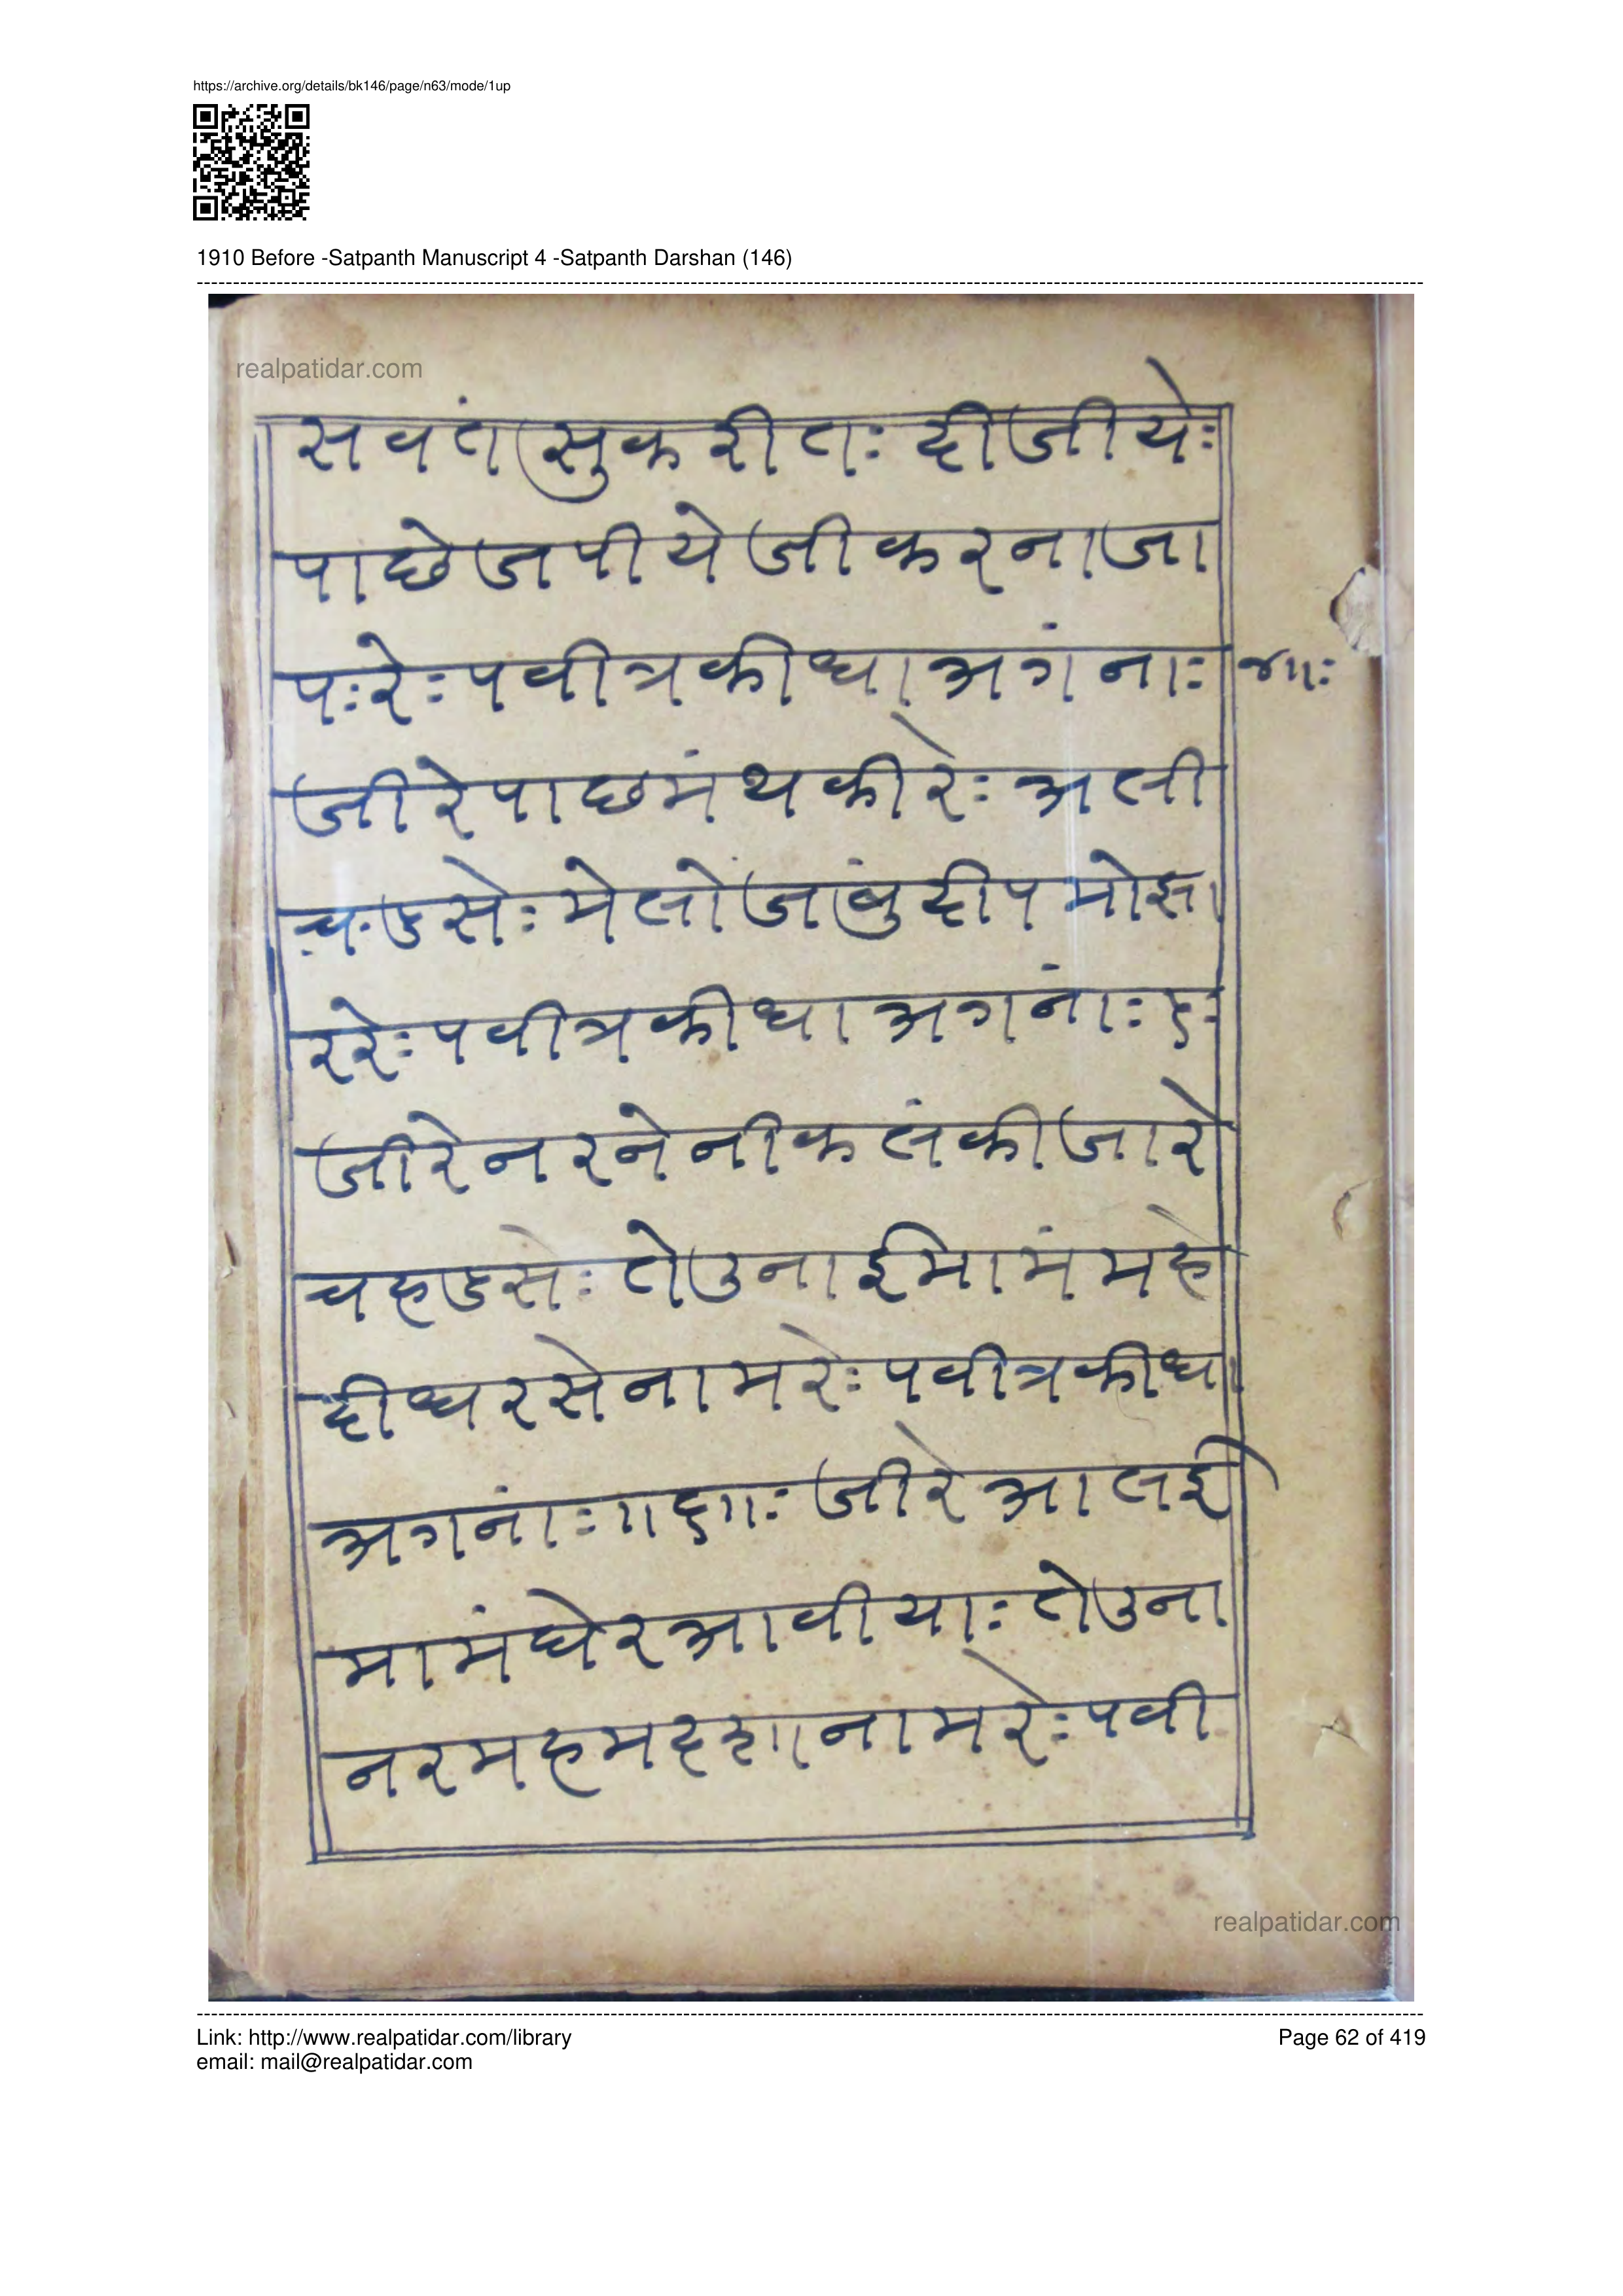 https://archive.org/details/bk146/page/n63/mode/1up
1910 Before -Satpanth Manuscript 4 -Satpanth Darshan (146)
realpatidar.com
सवंत सुकरीतः दीजीयेः
पाछे जपीये जीकरना जा
पःरेः पवीत्र कीधा अगंनाः
जीरे पाछमंथकी रेः अली
च·डसेः मेलो जांबुदीप मोझा
ररेः पवीत्र कीधा अगनांः
जीरे नरने नीकलंकी जारे
चहडसेः तेउना ईमामं महे
दीधरसे नामरेः पवीत्र कीधा
अगनांः जीरे आलई
मामं घेर आवीयाः तेउना
नर महमदशा नामरेः पवी
realpatidar.com
Link: http://www.realpatidar.com/library
Page 62 of 419
email: mail@realpatidar.com